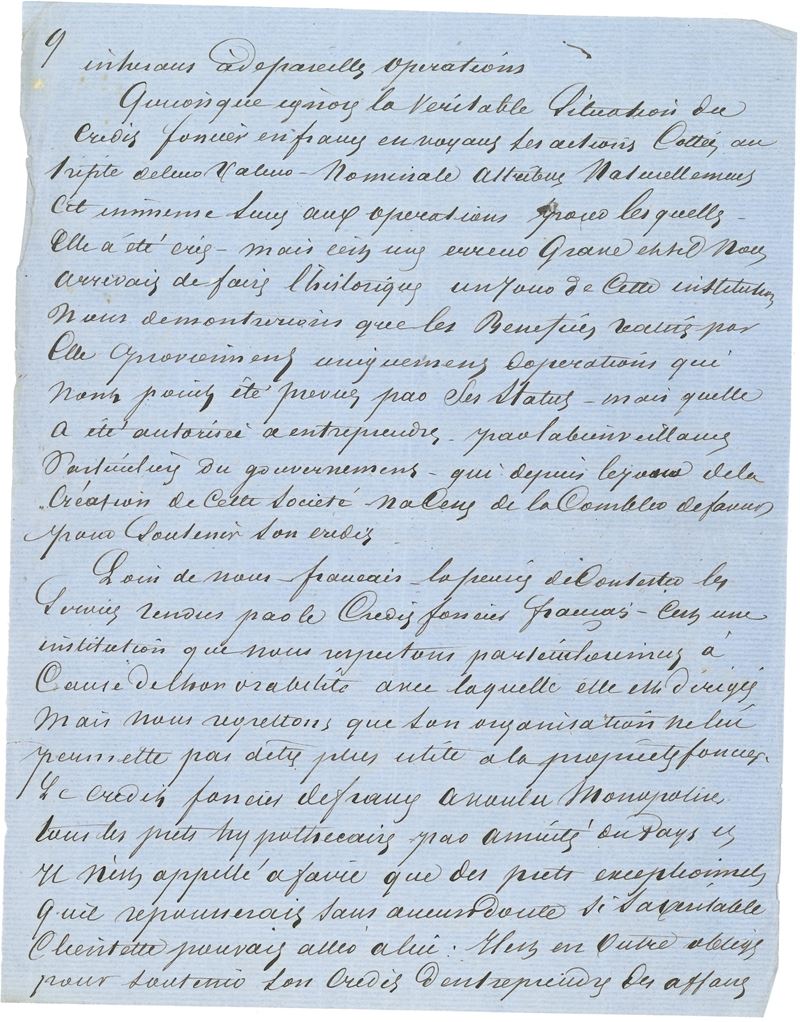 9
inherans à de pareilles operations
Quiconque ignore la Veritable Situation du
Credit foncier en france en voyant ses actions Cottées au
triple de leur Valeur Nominale attribue Naturellement
Cet immense Succ aux operations pour lesquelles
Elle à été crée - mais c'est une erreur Grave et s'il Nous
arrivait de faire l'historique un Jour de Cette institution
Nous demontrerions que les Benefices realisés par
Elle proviennent uniquement d'operations qui
nont point été prevues par Ses Statuts - mais quelle
a été autorisée a entreprendre par la bienveillance
Particuliere du gouvernement - qui depuis le jour de la
Création de Cette Société na Cessé de la Combler de faveurs
pour Soutenir Son credit
Loin de nous - francais - la pensée de Contester les
Services rendus par le Credit foncier francais - C'est une
institution que nous respectons particulierement à
Cause de lhonorabilité avec laquelle elle est dirigée
Mais nous regrettons que son organisation ne lui
permette pas detre plus utile a la propriété fonciere.
Le credit foncier de france a voulu Monopoliser
tous les prets hypothecaires par annuité du Pays et
Il n'est appellé a faire que des prets exceptionnels
Quil repousserait sans aucun doute si sa véritable
Clientelle pouvait aller a lui. Il est en Outre obligé
pour soutenir son Credit d'entreprendre des affaires